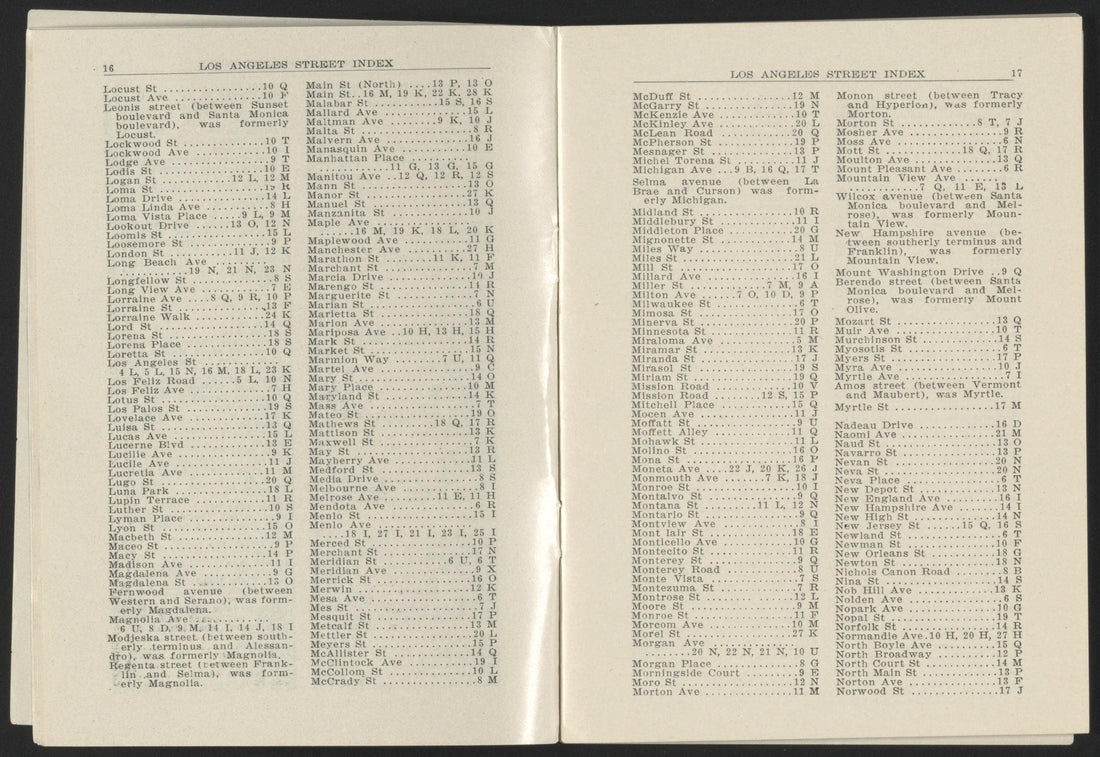 16
LOS ANGELES STREET INDEX
Locust St .................10 Q
Locust Ave ...............10 F
Leonis street (between Sunset
boulevard and Santa Monica
boulevard), was formerly
Locust.
Lockwood St ..............10 T
Lockwood Ave ............10 I
Lodge Ave .................9 T
Lodis St ..................10 E
Logan St .............12 L, 12 M
Loma St ..................19 R
Loma Drive ...............14 L
Loma Linda Ave ............8 H
Loma Vista Place .....9 L, 9 M
Lookout Drive ......13 O, 12 N
Loomis St ................15 L
Loosemore St ..............9 P
London St ..........11 J, 12 K
Long Beach Ave
............19 N, 21 N, 23 N
Longfellow St .............8 S
Long View Ave .............7 E
Lorraine Ave ....8 Q, 9 R, 10 P
Lorraine St ..............13 F
Lorraine Walk ............24 K
Lord St ..................14 Q
Lorena St ................18 S
Lorena Place .............18 S
Loretta St ...............10 Q
Los Angeles St
4 L, 5 L, 15 N, 16 M, 18 L, 23 K
Los Feliz Road ......5 L, 10 N
Los Feliz Ave .............7 H
Lotus St .................10 Q
Los Palos St .............19 S
Lovelace Ave .............17 K
Luisa St .................13 Q
Lucas Ave ................15 L
Lucerne Blvd .............13 E
Lucille Ave ...............9 K
Lucile Ave ...............11 J
Lucretia Ave .............11 M
Lugo St ..................20 Q
Luna Park ................18 L
Lupin Terrace ............11 R
Luther St ................10 S
Lyman Place ...............9 I
Lyon St ..................15 O
Macbeth St ...............12 M
Maceo St ..................9 P
Macy St ..................14 P
Madison Ave ..............11 I
Magdalena Ave .............9 G
Magdalena St .............13 O
Fernwood avenue (between
Western and Serano), was form-
erly Magdalena.
Magnolia Ave
6 U, 8 D, 9 M, 14 I, 14 J, 18 I
Modjeska street (between south-
erly terminus and Alessan-
dro), was formerly Magnolia.
Regenta street (between Frank-
lin and Selma), was form-
erly Magnolia.
Main St (North) ....13 P, 13 O
Main St..16 M, 19 K, 22 K, 28 K
Malabar St ..........15 S, 16 S
Mallard Ave ..............15 L
Maltman Ave ........9 K, 10 J
Malta St ..................8 R
Malvern Ave ..............16 J
Manasquin Ave ............10 E
Manhattan Place
............11 G, 13 G, 15 G
Manitou Ave ..12 Q, 12 R, 12 S
Mann St ..................13 O
Manor St .................27 K
Manuel St ................13 Q
Manzanita St .............10 J
Maple Ave
......16 M, 19 K, 18 L, 20 K
Maplewood Ave ............11 G
Manchester Ave ...........27 H
Marathon St ........11 K, 11 F
Marchant St ...............7 M
Marcia Drive .............19 J
Marengo St ...............14 R
Marguerite St .............7 N
Marian St .................6 U
Marietta St ..............18 Q
Marion Ave ...............13 M
Mariposa Ave ..10 H, 13 H, 15 H
Mark St ..................14 R
Market St ................15 N
Marmion Way ........7 U, 11 Q
Martel Ave ................9 C
Mary St ..................14 O
Mary Place ...............10 M
Maryland St ..............14 K
Mass Ave ..................7 T
Mateo St .................19 O
Mathews St .........18 Q, 17 R
Mattison St ..............13 K
Maxwell St ................7 K
May St ...................13 R
Mayberry Ave .............11 L
Medford St ...............13 S
Media Drive ...............8 S
Melbourne Ave .............8 I
Melrose Ave ........11 E, 11 H
Mendota Ave ...............6 R
Menlo St .................15 I
Menlo Ave
......18 I, 27 I, 21 I, 23 I, 25 I
Merced St ................10 P
Merchant St ..............17 N
Meridian St ..........6 U, 6 T
Meridian Ave ..............9 X
Merrick St ...............16 O
Merwin ...................12 K
Mesa Ave ..................6 T
Mes St ....................7 J
Mesquit St ...............17 P
Metcalf St ...............13 M
Mettler St ...............20 L
Meyers St ................15 P
McAllister St ............14 Q
McClintock Ave ...........19 I
McCollom St ..............10 L
McCrady St ................8 M
LOS ANGELES STREET INDEX
17
McDuff St ................12 M
McGarry St ...............19 N
McKenzie Ave .............10 T
McKinley Ave .............20 L
McLean Road ..............20 Q
McPherson St .............19 P
Mesnager St ..............13 P
Michel Torena St .........11 J
Michigan Ave ...9 B, 16 Q, 17 T
Selma avenue (between La
Brae and Curson) was form-
erly Michigan.
Midland St ...............10 R
Middlebury St ............11 I
Middleton Place ..........20 G
Mignonette St ............14 M
Miles Way .................8 U
Miles St .................21 L
Mill St ..................17 O
Millard Ave ..............16 I
Miller St ............7 M, 9 A
Milton Ave ......7 O, 10 D, 9 P
Milwaukee St ..............6 T
Mimosa St ................17 O
Minerva St ...............20 P
Minnesota St .............11 R
Miraloma Ave ..............5 M
Miramar St ...............13 K
Miranda St ...............17 J
Mirasol St ...............19 S
Miriam St ................19 Q
Mission Road .............10 V
Mission Road .......12 S, 15 P
Mitchell Place ...........15 Q
Mocen Ave ................11 J
Moffatt St ................9 U
Moffett Alley ............11 Q
Mohawk St ................11 L
Molino St ................16 O
Mona St ..................16 P
Moneta Ave ....22 J, 20 K, 26 J
Monmouth Ave .......7 K, 18 J
Monroe St ................10 I
Montalvo St ...............9 Q
Montana St .........11 L, 12 N
Montario St ...............9 Q
Montview Ave ..............8 I
Mont lair St .............18 E
Monticello Ave ...........10 G
Montecito St .............11 R
Monterey St ...............9 Q
Monterey Road .............8 U
Monte Vista ...............7 S
Montezuma St ..............7 R
Montrose St ..............12 L
Moore St ..................9 M
Monroe St ................11 F
Morcom Ave ...............10 M
Morel St .................27 K
Morgan Ave
........20 N, 22 N, 21 N, 10 U
Morgan Place ..............8 G
Morningside Court .........9 E
Moro St ..................12 N
Morton Ave ...............11 M
Monon street (between Tracy
and Hyperion), was formerly
Morton.
Morton St ............8 T, 7 J
Mosher Ave ................9 R
Moss Ave ..................6 N
Mott St ............18 Q, 17 R
Moulton Ave ..............13 Q
Mount Pleasant Ave ........6 R
Mountain View Ave
............7 Q, 11 E, 13 L
Wilcox avenue (between Santa
Monica boulevard and Mel-
rose), was formerly Moun-
tain View.
New Hampshire avenue (be-
tween southerly terminus and
Franklin), was formerly
Mountain View.
Mount Washington Drive ..9 Q
Berendo street (between Santa
Monica boulevard and Mel-
rose), was formerly Mount
Olive.
Mozart St ................13 Q
Muir Ave .................10 T
Murchinson St ............14 S
Myosotis St ...............6 T
Myers St .................17 P
Myra Ave .................10 J
Myrtle Ave ................7 I
Amos street (between Vermont
and Maubert), was Myrtle.
Myrtle St ................17 M
Nadeau Drive .............16 D
Naomi Ave ................21 M
Naud St ..................13 O
Navarro St ...............13 P
Nevan St .................20 N
Neva St ..................20 N
Neva Place ................6 T
New Depot St .............13 N
New England Ave ..........16 I
New Hampshire Ave ........14 I
New High St ..............14 N
New Jersey St ......15 Q, 16 S
Newland St ................6 T
Newman St ................10 F
New Orleans St ...........18 G
Newton St ................18 N
Nichols Canon Road ........8 B
Nina St ..................14 S
Nob Hill Ave .............13 K
Nolden Ave ................6 S
Nopark Ave ...............10 G
Nopal St .................19 T
Norfolk St ...............14 R
Normandie Ave.10 H, 20 H, 27 H
North Boyle Ave ..........15 Q
North Broadway ...........12 P
North Court St ...........14 M
North Main St ............13 P
Norton Ave ...............13 F
Norwood St ...............17 J